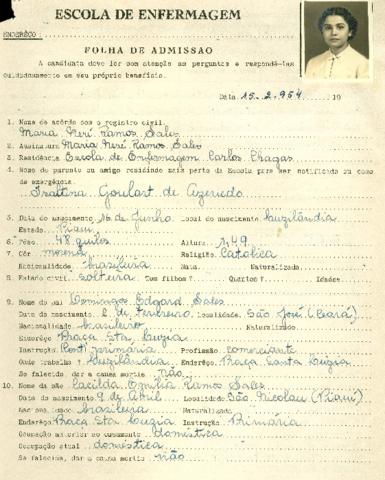 ESCOLA DE ENFERMAGEM
ENDERÊÇO:
FOLHA DE ADMISSÃO
A candidata deve ler com atenção as perguntas e respondê-las
cuidadosamente em seu próprio benefício.
Data 15.2.954 19
1. Nome de acôrdo com o registro civil.
Maria Neri Ramos Sales
2. Assinatura Maria Neri Ramos Sales
3. Residência Escola de Enfermagem Carlos Chagas
4. Nome do parente ou amigo residindo mais perto da Escola para ser notificado em caso
de emergência.
Goulart de Azevedo
5. Data do nascimento 16 de Junho Local do nascimento Luzilândia
Estado Piauí
6. Pêso 48 quilos Altura 1,49
7. Côr morena Religião Catolica
Nacionalidade brasileira Nata Naturalizada
8. Estado civil solteira Tem filhos? Quantos? Idades
9. Nome do pai Domingos Edgard Sales
Data do nascimento 2 de fevereiro Localidade São José (Ceará)
Nacionalidade brasileiro Naturalizado
Enderêço Praça Sta Luzia
Instrução primária Profissão comerciante
Onde trabalha Luzilândia Enderêço Praça Santa Luzia
Se falecido, dar a causa mortis não
10. Nome da mãe Cacilda Emilia Ramos Sales
Data do nascimento 9 de Abril Localidade São Nicolau (Piauí)
Nacionalidade brasileira Naturalizada
Enderêço Praça Sta Luzia Instrução Primária
Ocupação anterior ao casamento doméstica
Ocupação atual doméstica
Se falecida, dar a causa mortis não